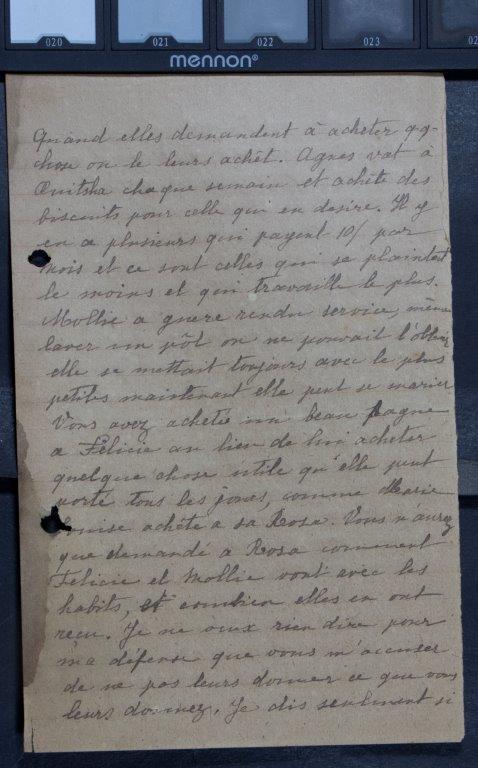 020 021 022 023 02
mennon®
Quand elles demandent à acheter qq-
chose on le leurs achêt. Agnes vat à
Onitsha chaque semain et achète des
biscuits pour celle qui en desire. Il y
en a plusieurs qui payent 10/ par
mois et ce sont celles qui se plaintent
le moins et qui travaille le plus.
Mollie a guere rendu service, même
laver un pôt on ne pouvait l'obtenir
elle se mettait toujours avec le plus
petites maintenant elle peut se marier
Vous avez achetée un beau pagne
a Félicie au lieu de lui acheter
quelque chose utile qu'elle peut
porté tous les joues, comme Marie
Louise achête a sa Rosa. Vous n'aurez
que demandé à Rosa comment
Felicie et Mollie vont avec les
habits, et combien elles en ont
reçu. Je ne veux rien dire pour
ma défense que vous m'accuser
de ne pas leurs donner ce que vous
leurs donnez. Je dis seulment si